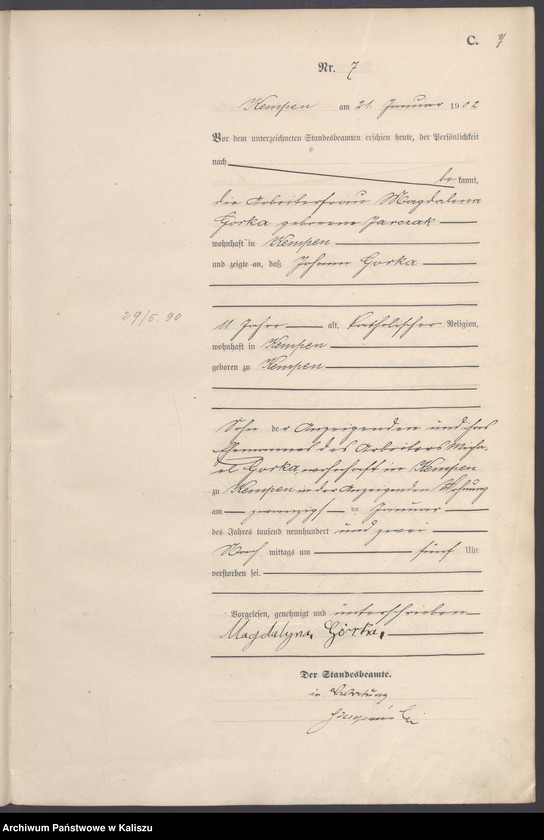 C. 7
Nr. 7
Kempen am 21. Januar 1902
Vor dem unterzeichneten Standesbeamten erschien heute, der Persönlichkeit
nach
be kannt,
die Arbeiterfrau Magdalena
Gorka geborene Jarczak
wohnhaft in Kempen
und zeigte an, daß Johann Gorka
29/5. 90
11 Jahre alt, katholischer Religion,
wohnhaft in Kempen
geboren zu Kempen
Sohn der Anzeigenden und ihres
Ehemannes des Arbeiters Micha-
el Gorka, wohnhaft in Kempen
zu Kempen in der Anzeigenden Wohnung
am zwanzigsten Januar
des Jahres tausend neunhundert und zwei
Nach mittags um fünf Uhr
verstorben sei.
Vorgelesen, genehmigt und unterschrieben
Magdalyna Górka,
Der Standesbeamte.
in Vertretung
Archiwum Państwowe w Kaliszu